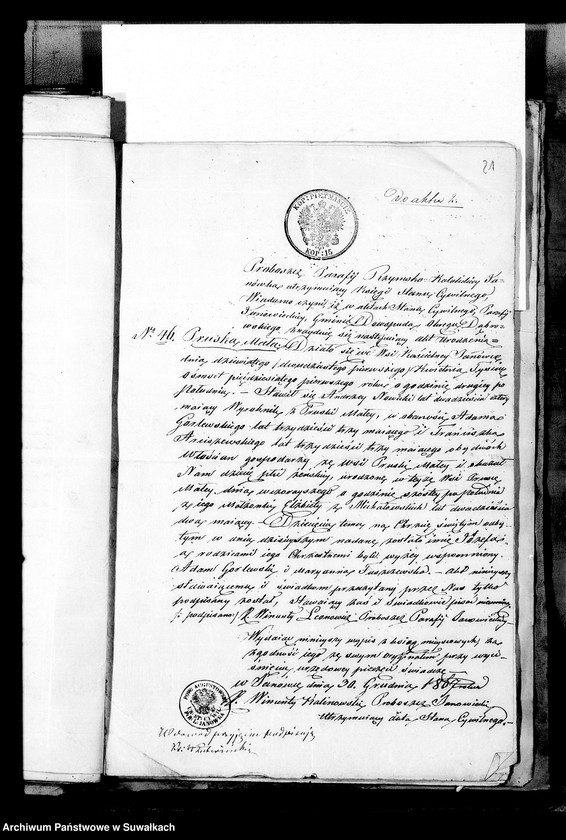 21
Do aktu 2.
KOP: PIĘTNAŚCIE
KOP: 15
Proboszcz Parafij Rzymsko-Katolickiej Ja-
nówka utrzymujący Księgi Stanu Cywilnego,
Wiadomo czyni iż w aktach Stanu Cywilnego, Parafij
Janowieckiej, Gminie Dowspuda Okręgu Dąbro-
wskiego znajduje się następujący akt Urodzenia
№ 46. Pruska Mała. Działo się we Wsi Kościelnej Janówce
dnia dziewiątego /dwudziestego pierwszego/ Kwietnia Tysiąc
ośmset pięćdziesiątego pierwszego roku o godzinie drugiej po
południu. Stawił się Andrzej Nowicki lat dwadzieścia cztery
mający Wyrobnik z Pruski Małej, w obecności Adama
Gorlewskiego lat trzydzieści trzy mającego i Franciszka
lat trzydzieści trzy mającego obydwóch
Włościan gospodarzy ze wsi Pruski Małej i okazał
Nam dziecię płci żeńskiej, urodzone w tejże Wsi Prusce
Małej, dnia wczorajszego o godzinie szóstej po południu
z jego Małżonki Elżbiety z Michałowskich lat dwadzieścia
dwa mającej. Dziecięciu temu na Chrzcie świętym odby-
tym w dniu dzisiejszym nadane zostało imię Józefa,
a rodzicami jego Chrzestnemi byli wyżej wspomniony
Adam Gorlewski i Maryanna Akt niniejszy
stawiającemu i świadkom przeczytany przez Nas tylko
podpisany został, Stawający zaś i Świadkowie pisać nieumieją
/: podpisano:/ X Wincenty Leonowicz Proboszcz Parafij Janowieckiej
Wydając niniejszy wypis z ksiąg miejscowych za
zgodność jego ze swym oryginałem przy wyci-
śnięciu urzędowej pieczęci świadczę
w Janówce dnia 30 Grudnia roku
X Wincenty Kalinowski Proboszcz Janowiecki
Utrzymujący akta Stanu Cywilnego.
W dowód przyjęcia podpisuję
Archiwum Państwowe w Suwałkach